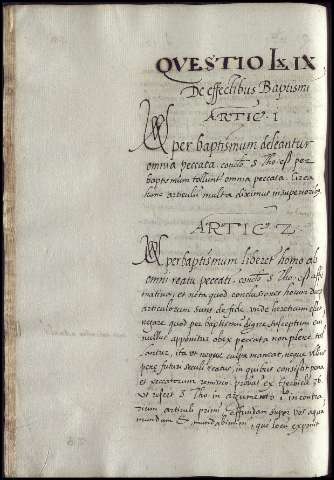 QVESTIO LXIX
De effectibus Baptismi
ARTIC. 1
per baptismum deleantur
omnia peccata. conclu. S. Tho. est per
baptismum tolluntur omnia peccata. circa
articulum multa diximus in superioribus
ARTIC 2.
per baptismum liberet homo ab
omni reatu peccati. conclu. S. Tho. est affir
mativa, et nota quod conclusiones horum duorum
articulorum sunt de fide, unde hereticum est
negare quod per baptismum digne susceptum
nullus ob peccata non plene tol
lantur, ita ut neque culpa maneat, neque ulla
pena futuri seculi reatus, in quibus consistit
peccatorum remissio probat ex
S. Tho. in argumento in contra
rium articuli primi effundam super vos aquam
mundam et mundabimini